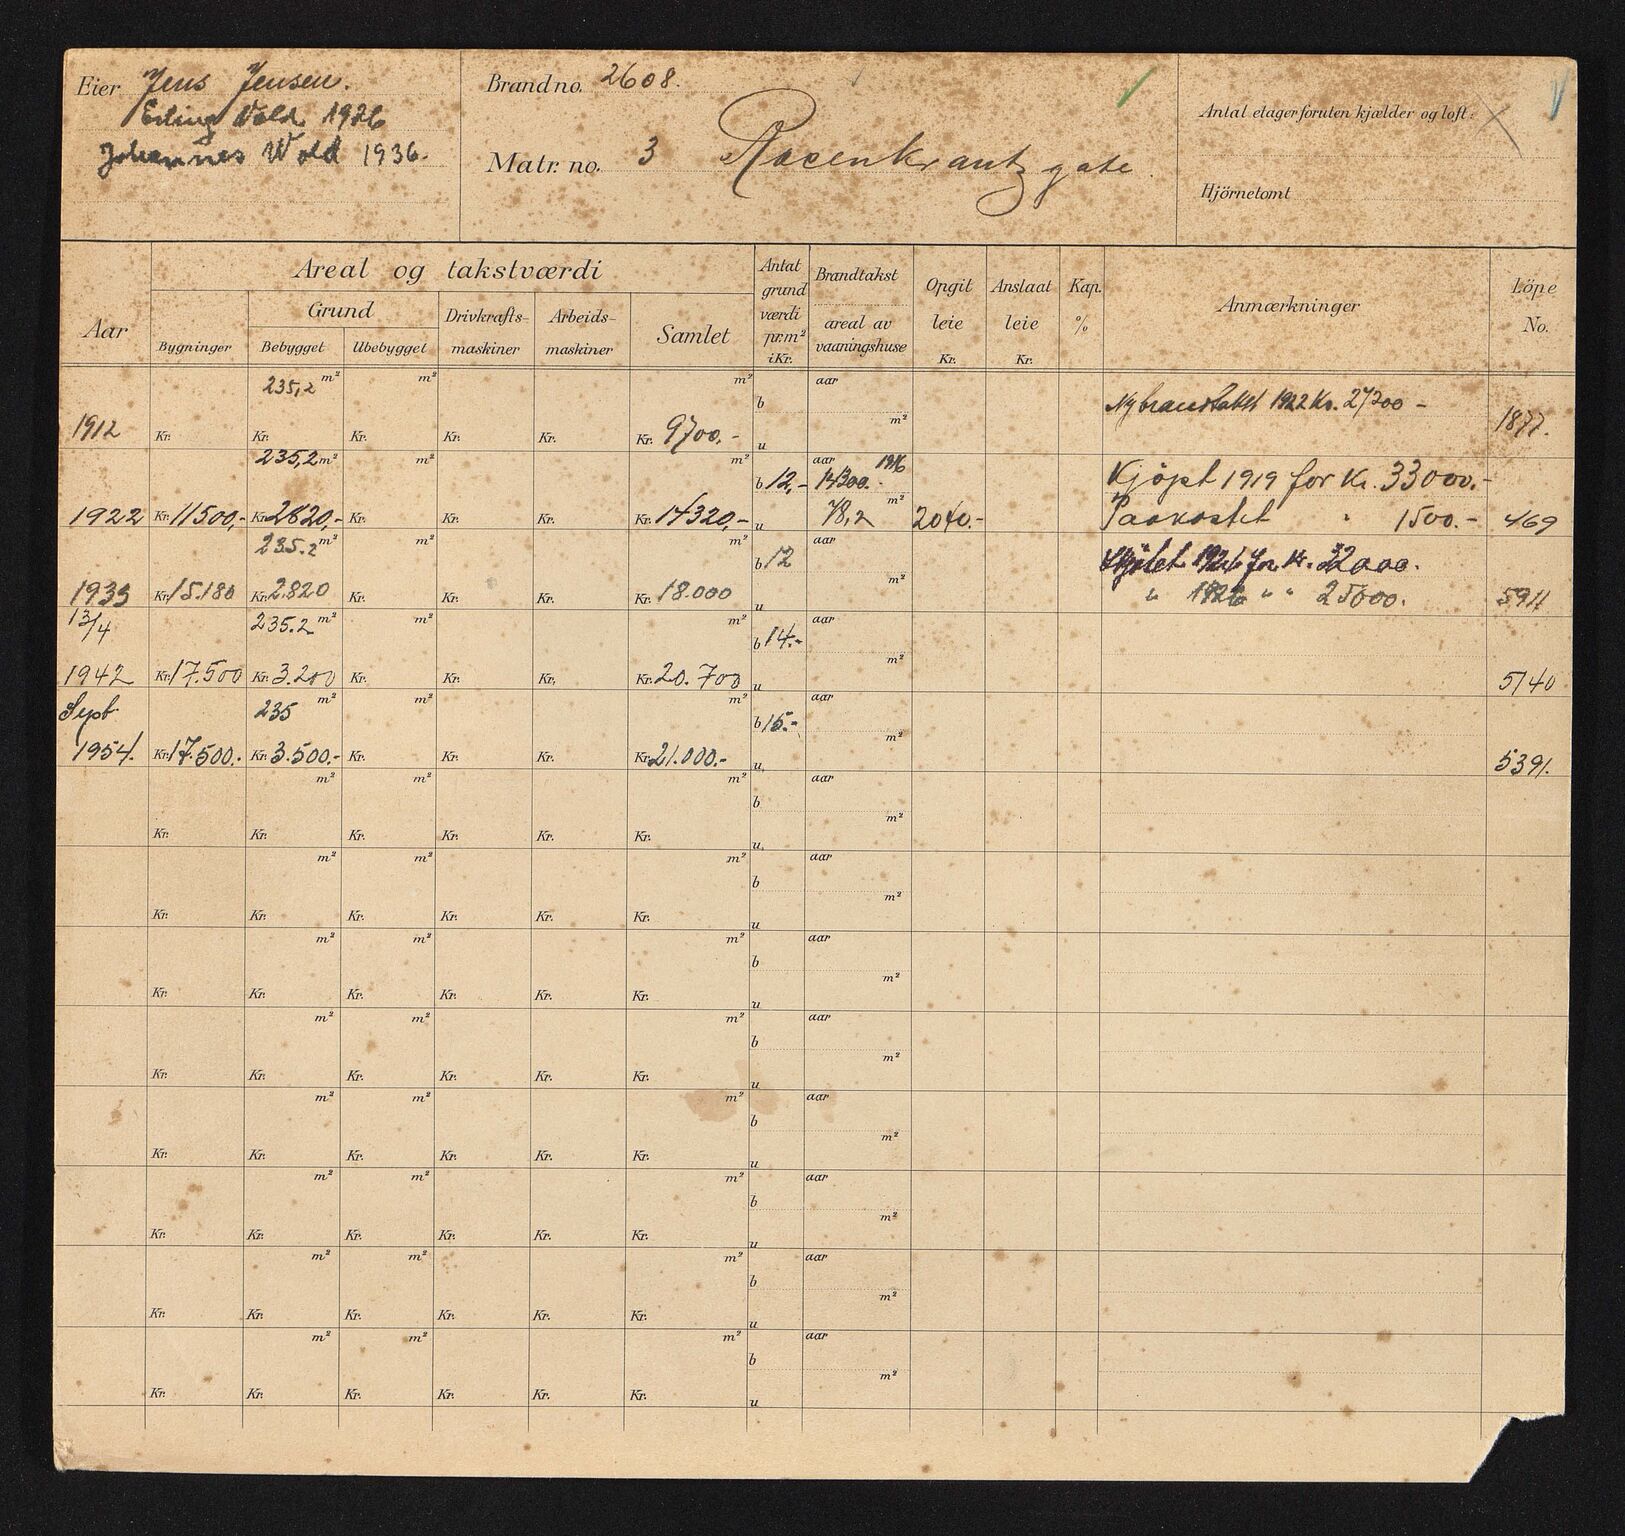 Eier Jens Jensen.
Erling Wold 1926
Johannes Wold 1936.
Brand no. 2608.
Matr. no. 3 Rosenkrantz gate.
Antal etager foruten kjælder og loft:
Hjörnetomt
Aar
Areal og takstværdi
Bygninger
Grund
Bebygget
Ubebygget
Drivkrafts-
maskiner
Arbeids-
maskiner
Samlet
Antat
grund
værdi
pr. m²
i Kr.
Brandtakst
areal av
vaaningshuse
Opgit
leie
Kr.
Anslaat
leie
Kr.
Kap.
%
Anmærkninger
Löpe
No.
235,2 m² m² m² aar
b
1912 Kr. Kr. Kr. Kr. Kr. Kr. 9700.- u m² 1877.
Ny branntakst 1922 Kr. 27200 -
235,2 m² m² m² b 12,- aar 1916 14300.-
1922 Kr. 11500,- Kr. 2820,- Kr. Kr. Kr. Kr. 14320,- u 78,2 m² 2040.- 469
Kjöpt 1919 for Kr. 33000.-
Paakostet " 1500.-
235.2 m² m² m² b 12 aar
1933 Kr. 15.180 Kr. 2.820 Kr. Kr. Kr. Kr. 18.000 u m² 5911
Skjötet 1926 for Kr. 32000.
" 1926 " " 25000.
13/4 235.2 m² m² m² b 14.- aar
1942 Kr. 17.500 Kr. 3.200 Kr. Kr. Kr. Kr. 20.700 u m² 5740
Sept 235 m² m² m² b 15.- aar
1954. Kr. 17.500.- Kr. 3.500.- Kr. Kr. Kr. Kr. 21.000.- u m² 5391.
m² m² m² b aar
Kr. Kr. Kr. Kr. Kr. Kr. u m²
m² m² m² b aar
Kr. Kr. Kr. Kr. Kr. Kr. u m²
m² m² m² b aar
Kr. Kr. Kr. Kr. Kr. Kr. u m²
m² m² m² b aar
Kr. Kr. Kr. Kr. Kr. Kr. u m²
m² m² m² b aar
Kr. Kr. Kr. Kr. Kr. Kr. u m²
m² m² m² b aar
Kr. Kr. Kr. Kr. Kr. Kr. u m²
m² m² m² b aar
Kr. Kr. Kr. Kr. Kr. Kr. u m²
m² m² m² b aar
Kr. Kr. Kr. Kr. Kr. Kr. u m²